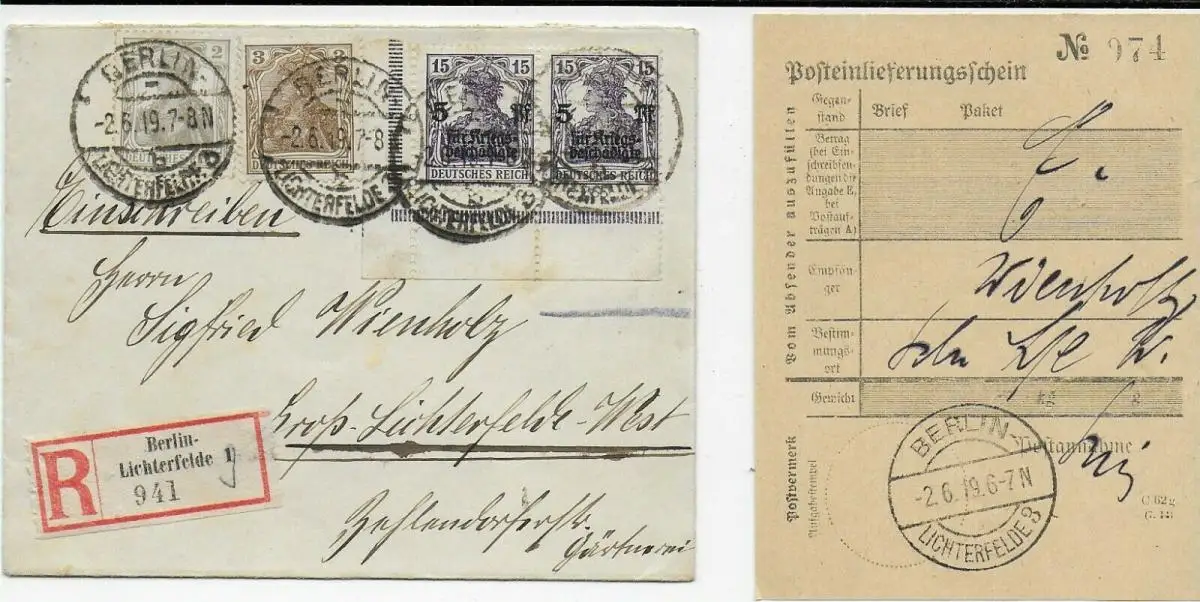 BERLIN-
-2.6.19.7-8N
b
LICHTERFELDE 3
2
DEUTSCHES REICH
3 3
BERLIN-
-2.6.19.7-8
LICHTERFELDE 3
DEUTSCHES REICH
15 15
5 Pf
für Kriegs-
beschädigte
DEUTSCHES REICH
15 15
5 Pf
für Kriegs-
beschädigte
DEUTSCHES REICH
LICHTERFELDE 3
Einschreiben
Herrn
Sigfried Wienholz
Groß-Lichterfelde-West
Zehlendorferstr.
Gärtnerei
R
Berlin-
Lichterfelde 1
941
№ 974
Posteinlieferungsschein
Vom Absender auszufüllen
Gegen-
stand
Brief Paket
Betrag
(bei Ein-
schreibsen-
dungen die
Angabe E,
bei
Postauf-
trägen A)
E.
Empfän-
ger
Wienholz
Bestim-
mungs-
ort
Bln Lfe W.
Gewicht
kg g
Postvermerk
Aufgabestempel
Postannahme
BERLIN-
-2.6.19.6-7N
LICHTERFELDE 3
C 62g